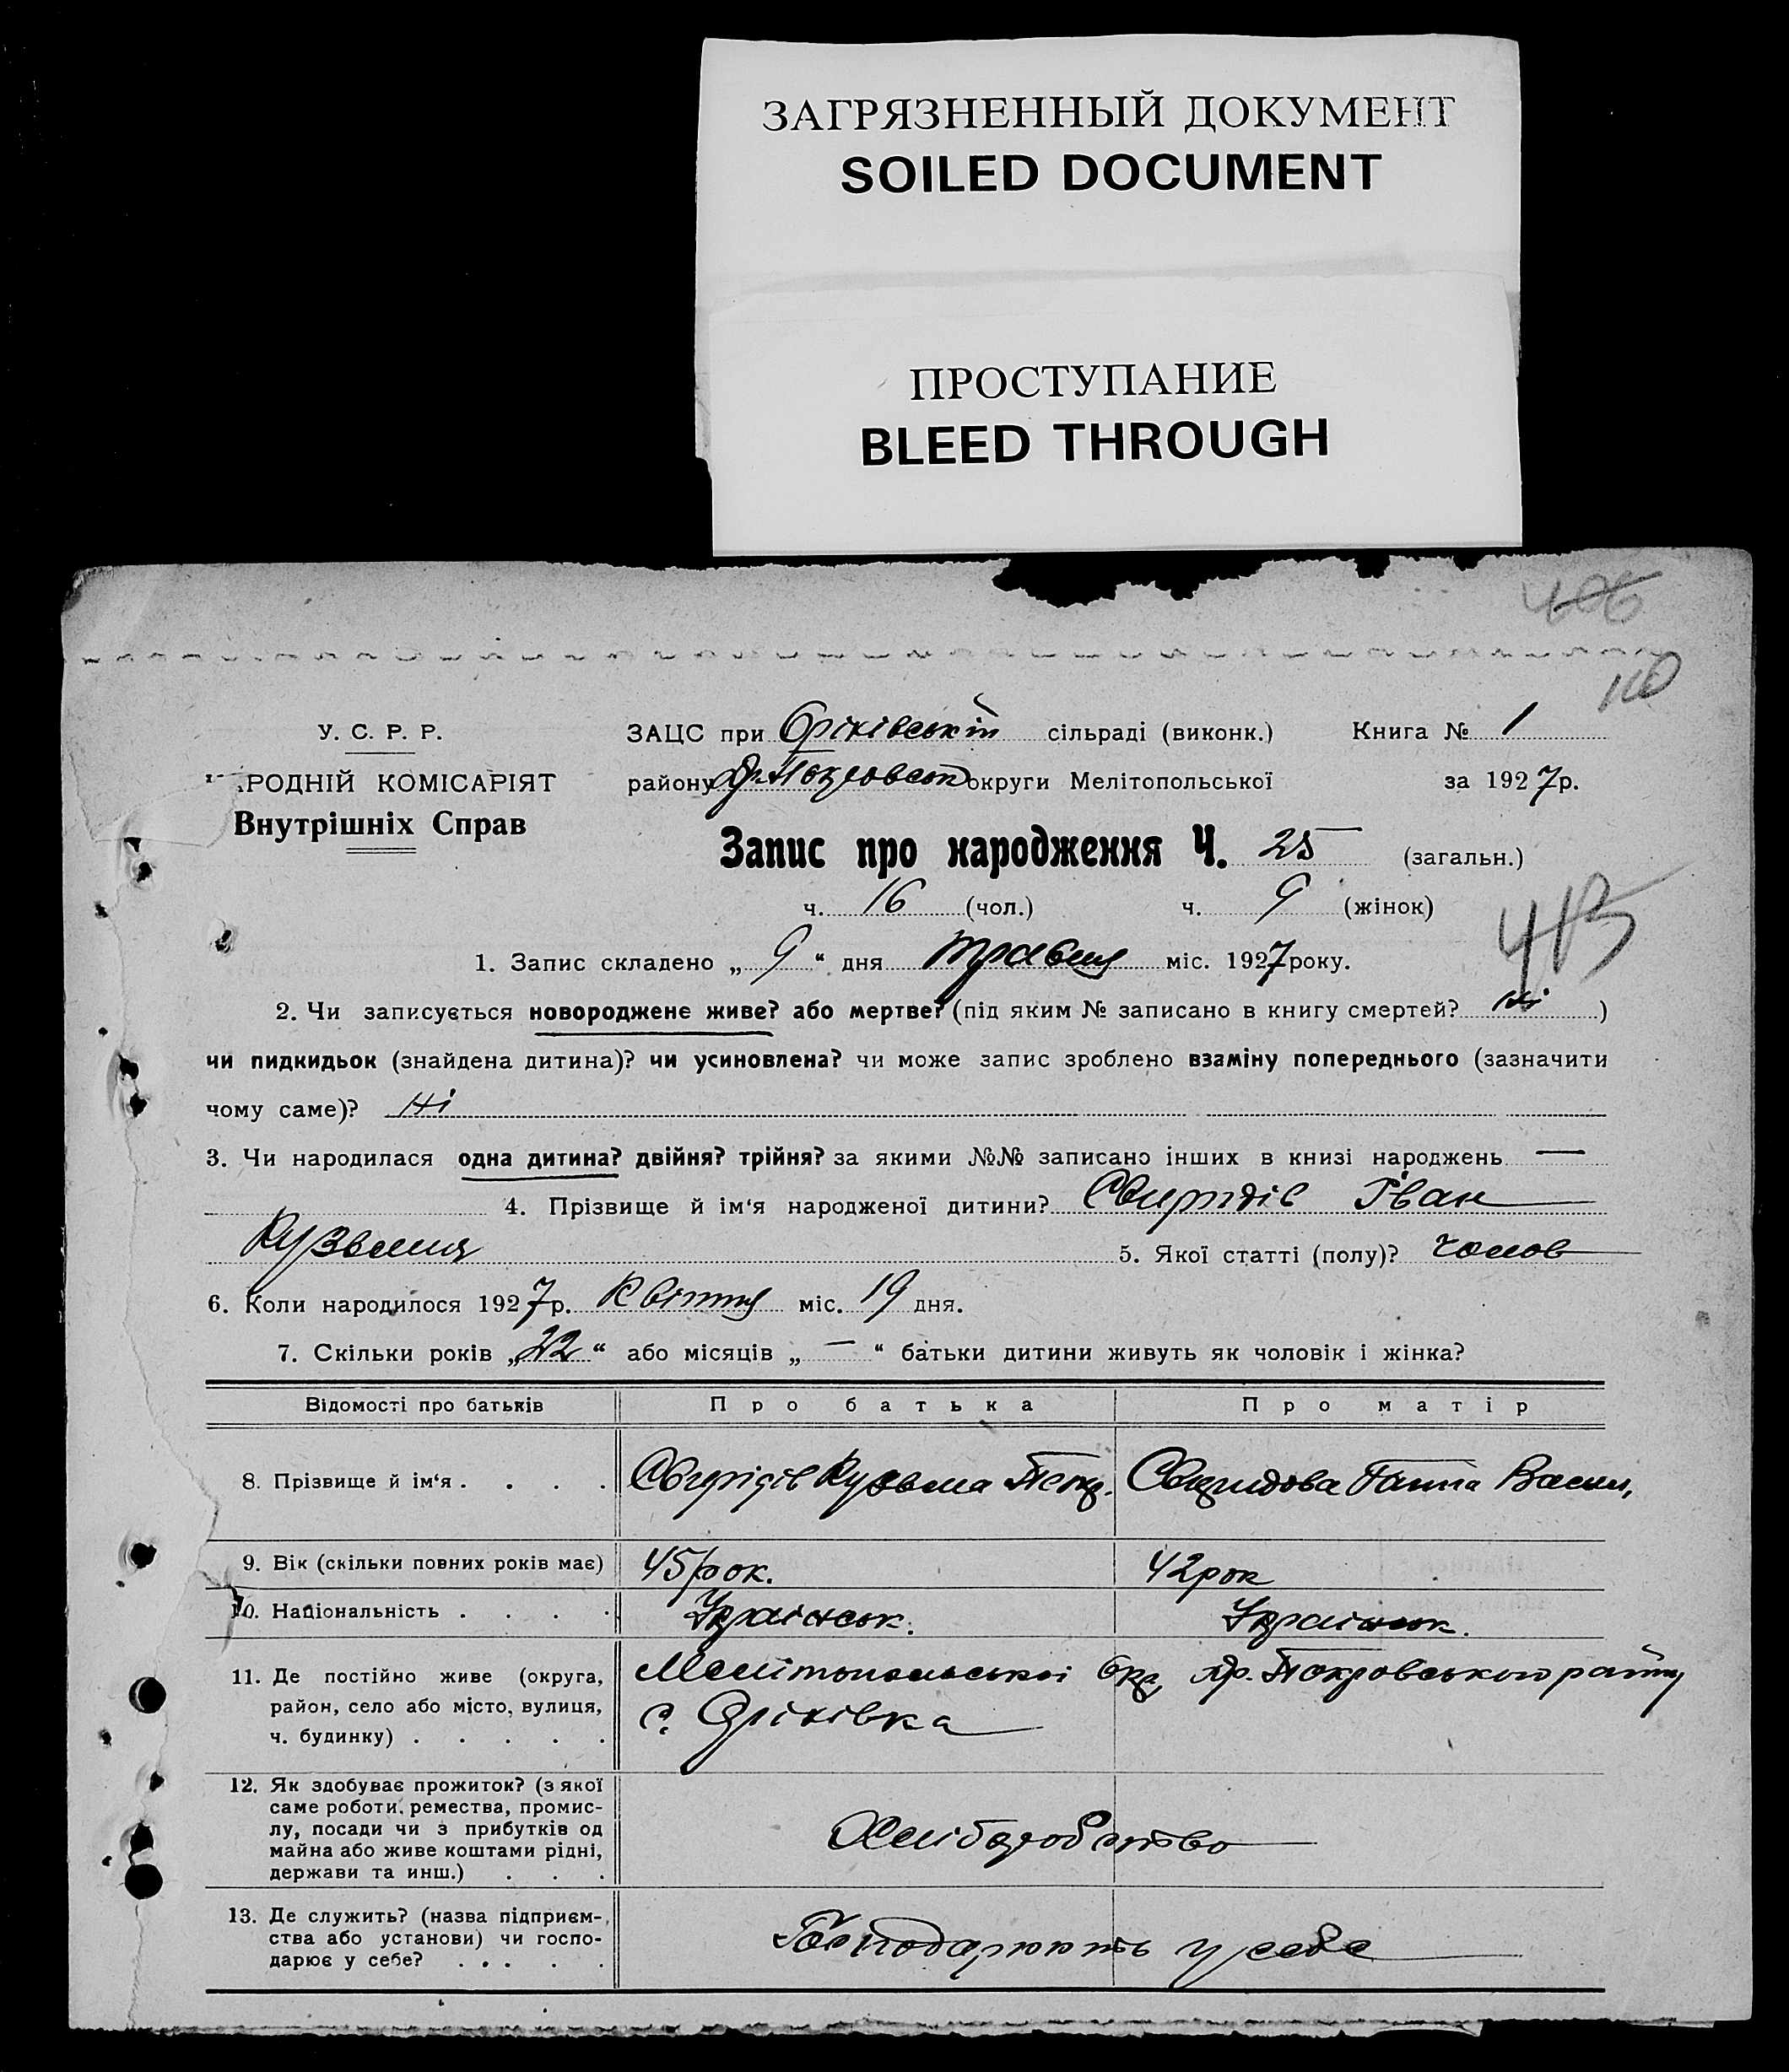 ЗАГРЯЗНЕННЫЙ ДОКУМЕНТ
SOILED DOCUMENT
ПРОСТУПАНИЕ
BLEED THROUGH
406
110
У. С. Р. Р. ЗАЦС при Оріхівській сільраді (виконк.) Книга № 1
РОДНІЙ КОМІСАРІЯТ району округи Мелітопольської за 1927р.
Внутрішніх Справ
Запис про народження Ч. 25 (загальн.)
ч. 16 (чол.) ч. 9 (жінок)
413
1. Запис складено „ 9 “ дня травня міс. 1927 року.
2. Чи записується новороджене живе? або мертве? (під яким № записано в книгу смертей? ні )
чи пидкидьок (знайдена дитина)? чи усиновлена? чи може запис зроблено взаміну попереднього (зазначити
чому саме)? Ні
3. Чи народилася одна дитина? двійня? трійня? за якими №№ записано інших в книзі народжень —
4. Прізвище й ім‘я народженої дитини? Свирідів Іван
Кузьмич 5. Якої статті (полу)? чолов
6. Коли народилося 1927р. Квітня міс. 19 дня.
7. Скільки років „22“ або місяців „ — “ батьки дитини живуть як чоловік і жінка?
Відомості про батьків Про батька Про матір
8. Прізвище й ім‘я . . . . Свірідів Кузьма Петр. Свиридова Ганна Васил.
9. Вік (скільки повних років має) 45 рок. 42 рок
10. Національність . . . . Українськ. Українськ.
11. Де постійно живе (округа, Мелітопольської Окр. Пр. Покровського району
район, село або місто, вулиця, с. Оріхівка
ч. будинку) . . . . .
12. Як здобуває прожиток? (з якої
саме роботи, ремества, промис-
лу, посади чи з прибутків од Хліборобство
майна або живе коштами рідні,
держави та инш.) . . .
13. Де служить? (назва підприєм-
ства або установи) чи госпо- Господарюють у себе
дарює у себе? . . . . .